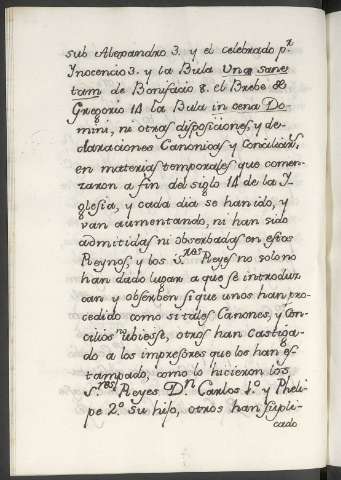 sub Alexandro 3. y el celebrado pr
Ynocencio 3. y la Bula Unam sanc
tam de Bonifacio 8. el Brebe de
Gregorio 14 la Bula in cena Do-
mini, ni otras disposiciones, y de-
claraciones Canonicas y Conciliars,
en materias temporales que comen-
zaron a fin del siglo 14 de la Y-
glesia, y cada dia se han ido, y
van aumentando, ni han sido
admitidas ni obserbadas en estos
Reynos, y los s.res Reyes no solo no
han dado lugar a que se introduz
can y obserben si que unos han pro-
cedido como si tales Canones, y Con-
cilios no ubiese, otros han Castiga-
do a los impresores que los han es-
tampado, como lo hicieron los
s.res Reyes Dn Carlos 1.º y Pheli-
pe 2.º su hijo, otros han supli-
cado